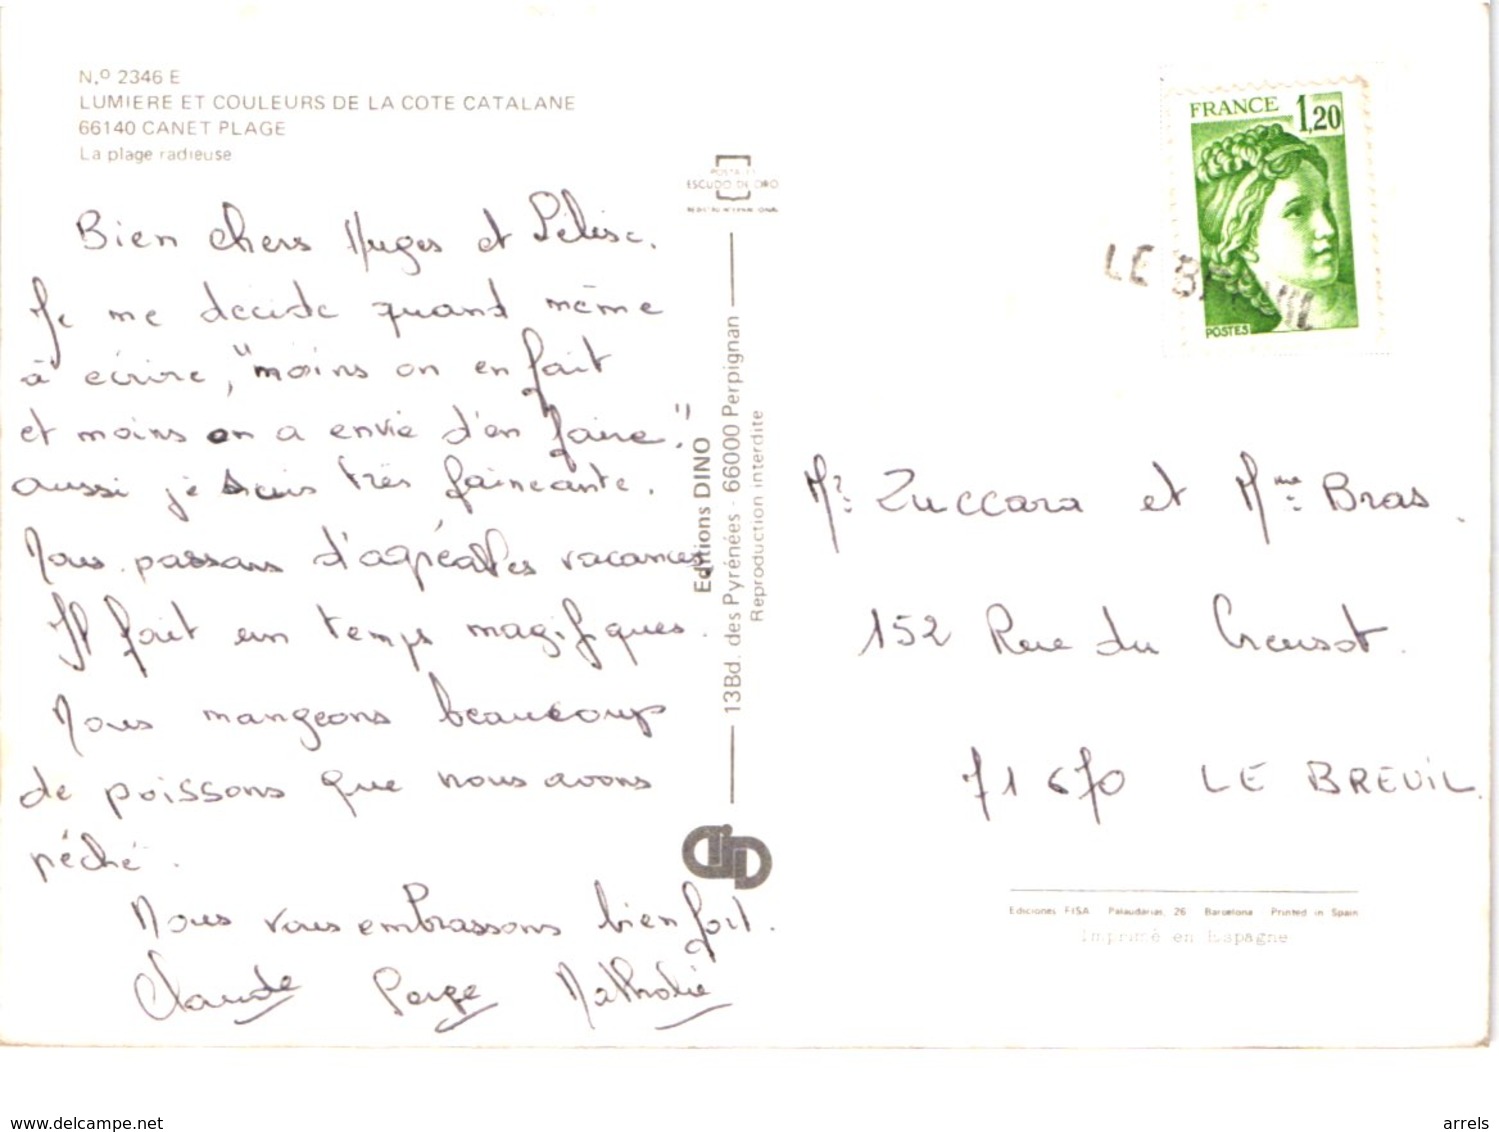 N.º 2346 E
LUMIERE ET COULEURS DE LA COTE CATALANE
66140 CANET PLAGE
La plage radieuse
Bien chers Huges et
Je me décide quand même
à écrire, "moins on en fait
et moins on a envie d'en faire."
aussi je suis très faineante.
Nous passons d'agréables vacances
Il fait un temps magifiques.
Nous mangeons beaucoup
de poissons que nous avons
pêché.
Nous vous embrassons bien fort.
Claude Serge Nathalie
POSTAL
ESCUDO DE ORO
REGISTRO INTERNACIONAL
Editions DINO
13Bd. des Pyrénées - 66000 Perpignan
Reproduction interdite
FRANCE 1,20
POSTES
LE BREUIL
Mr Zuccara et Mme Bras.
152 Rue du Creusot.
71670 LE BREUIL.
Ediciones FISA Palaudarias, 26 Barcelona Printed in Spain
Imprimé en Espagne
www.delcampe.net
arrels